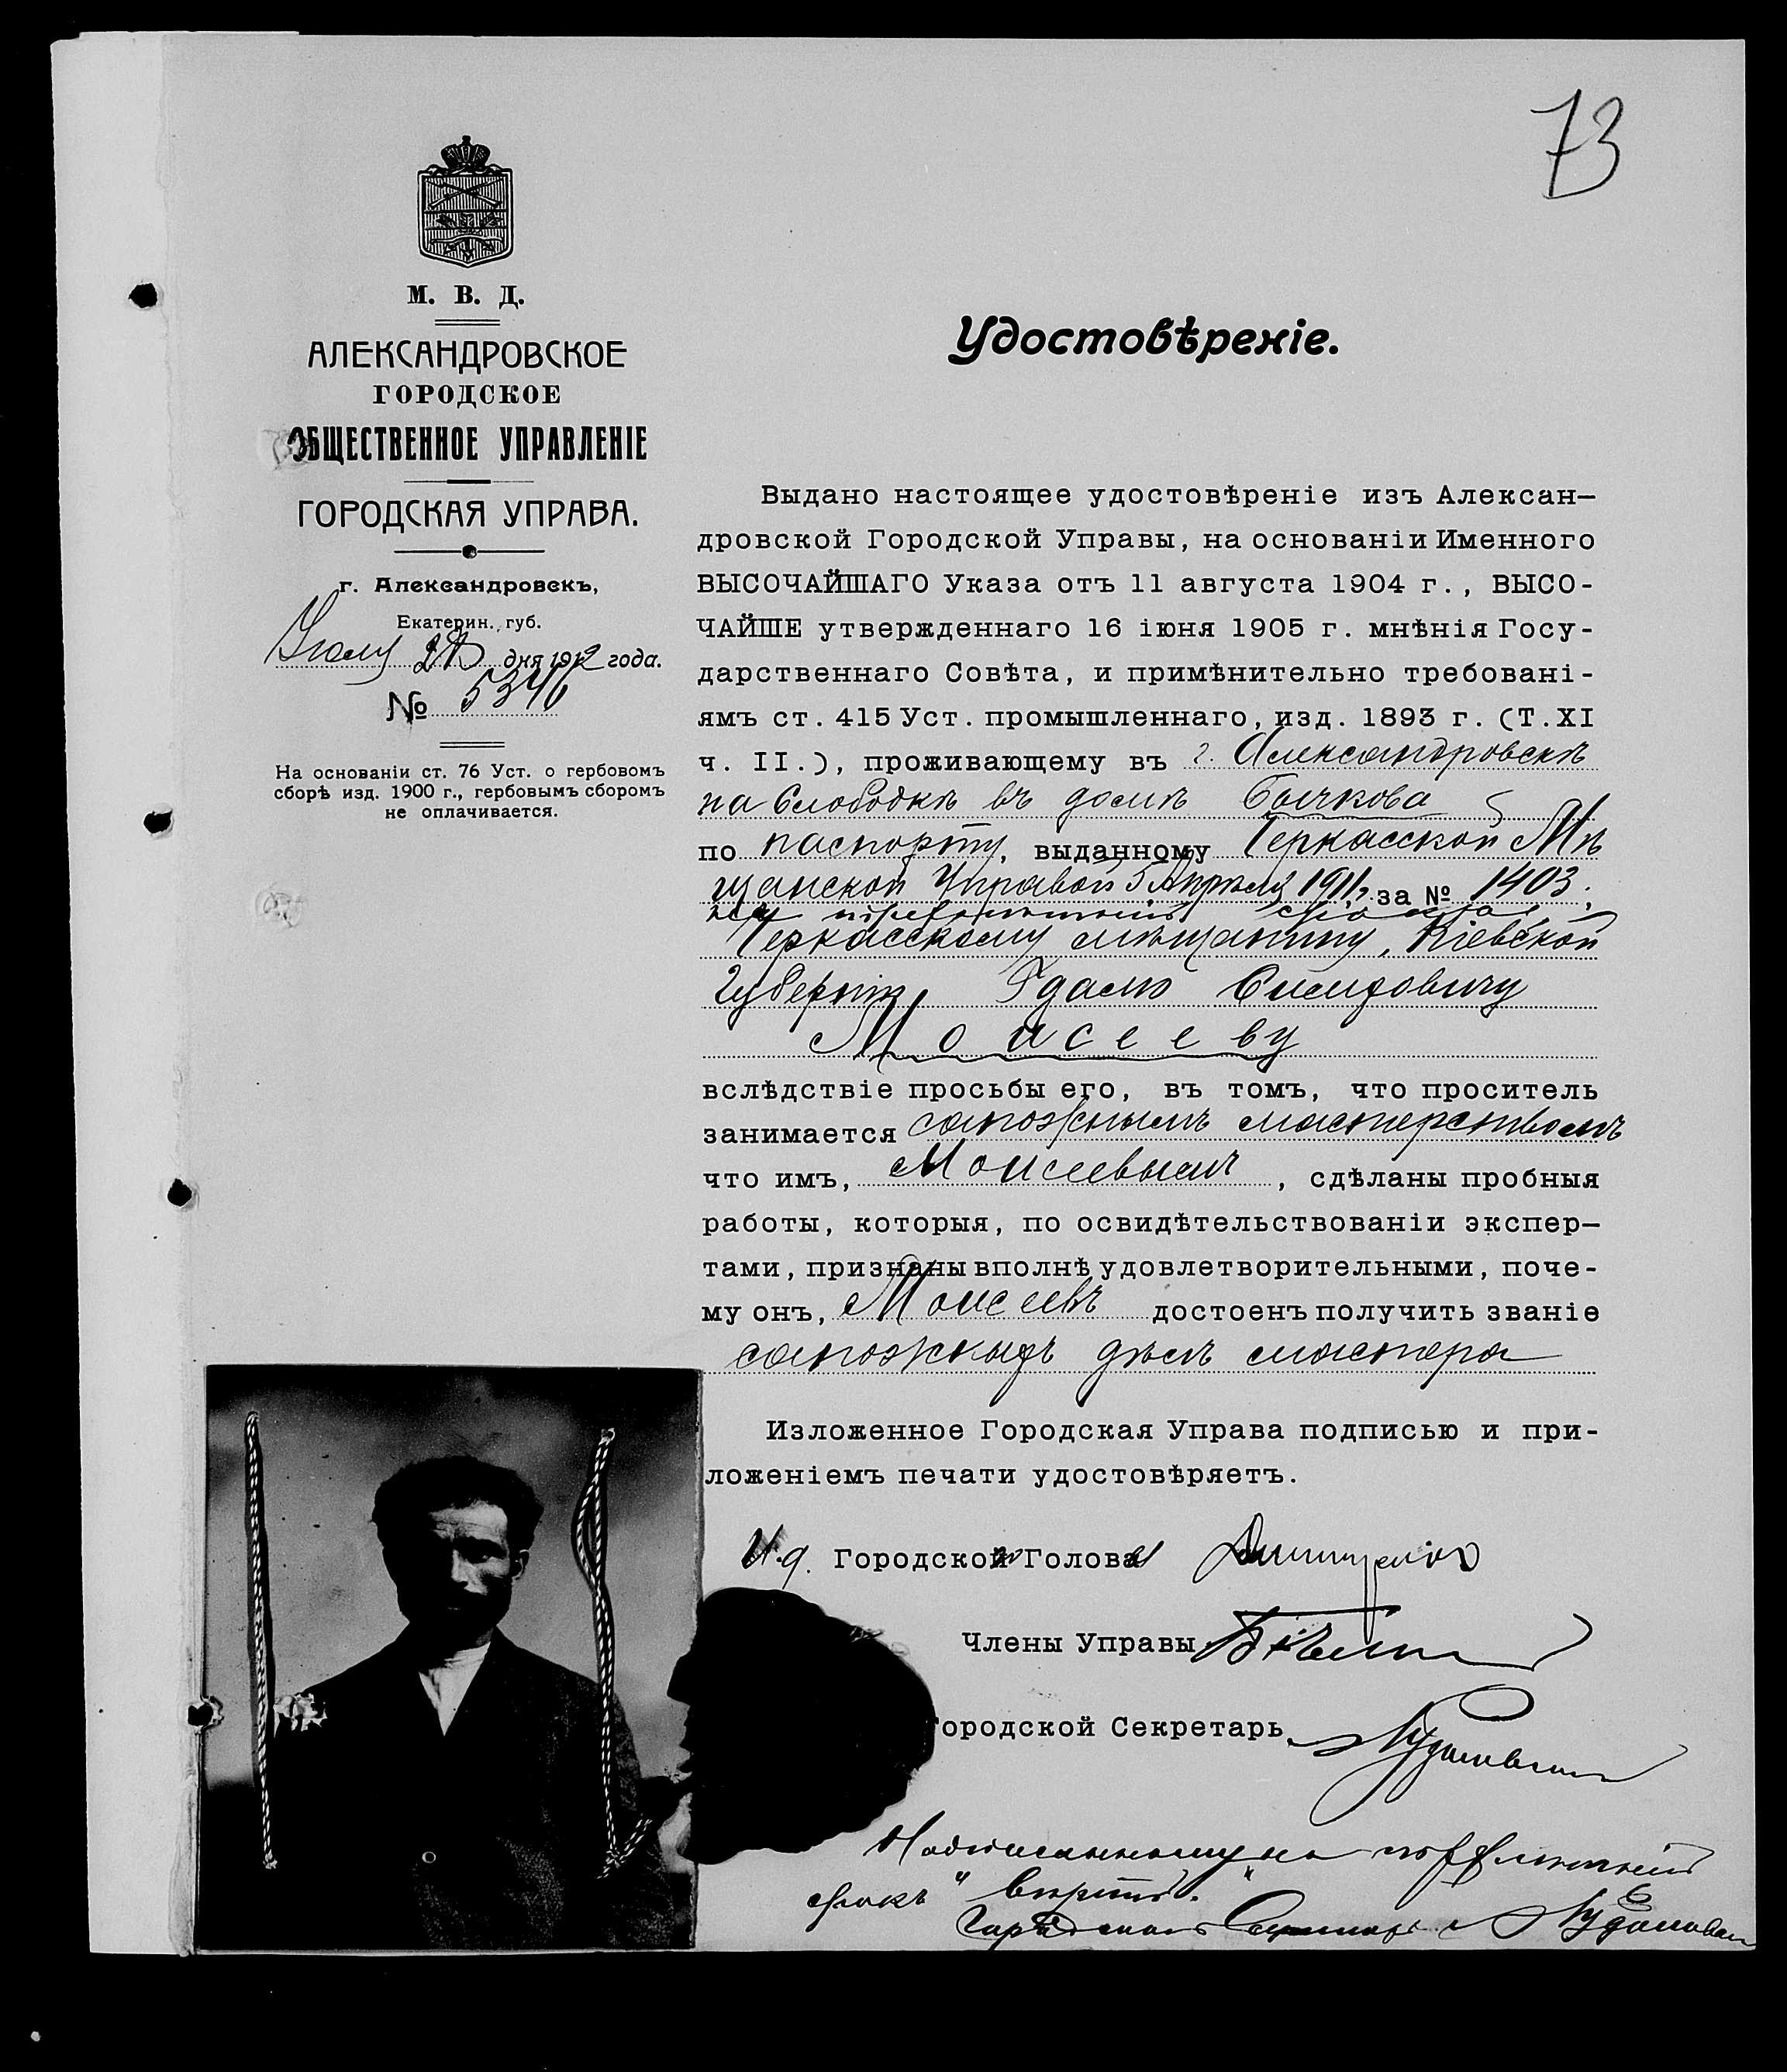 73
М. В. Д.
АЛЕКСАНДРОВСКОЕ
ГОРОДСКОЕ
ОБЩЕСТВЕННОЕ УПРАВЛЕНІЕ
ГОРОДСКАЯ УПРАВА.
г. Александровскъ,
Екатерин. губ.
дня 1912 года.
№ 5346
На основаніи ст. 76 Уст. о гербовомъ
сборѣ изд. 1900 г., гербовымъ сборомъ
не оплачивается.
Удостовѣреніе.
Выдано настоящее удостовѣреніе изъ Алексан-
дровской Городской Управы, на основаніи Именного
ВЫСОЧАЙШАГО Указа отъ 11 августа 1904 г., ВЫСО-
ЧАЙШЕ утвержденнаго 16 іюня 1905 г. мнѣнія Госу-
дарственнаго Совѣта, и примѣнительно требовані-
ямъ ст. 415 Уст. промышленнаго, изд. 1893 г. (Т. XI
ч. II.), проживающему въ г. Александровскѣ
на Слободкѣ въ домѣ Бычкова
по паспорту, выданному Черкасской Мѣ
щанской Управой 5 Апрѣля 1911 г. за № 1403.
Черкасскому мѣщанину, Кіевской
Губерніи, Гдалю Симховичу
Моисееву
вслѣдствіе просьбы его, въ томъ, что проситель
занимается сапожнымъ мастерствомъ
что имъ, Моисеевымъ, сдѣланы пробныя
работы, которыя, по освидѣтельствованіи экспер-
тами, признаны вполнѣ удовлетворительными, поче-
му онъ, Моисеевъ достоенъ получить званіе
сапожныхъ дѣлъ мастера
Изложенное Городская Управа подписью и при-
ложеніемъ печати удостовѣряетъ.
И.д. Городского Головы
Члены Управы
Городской Секретарь
Надписанному на
срокъ" вѣрить.
Городской Секретарь